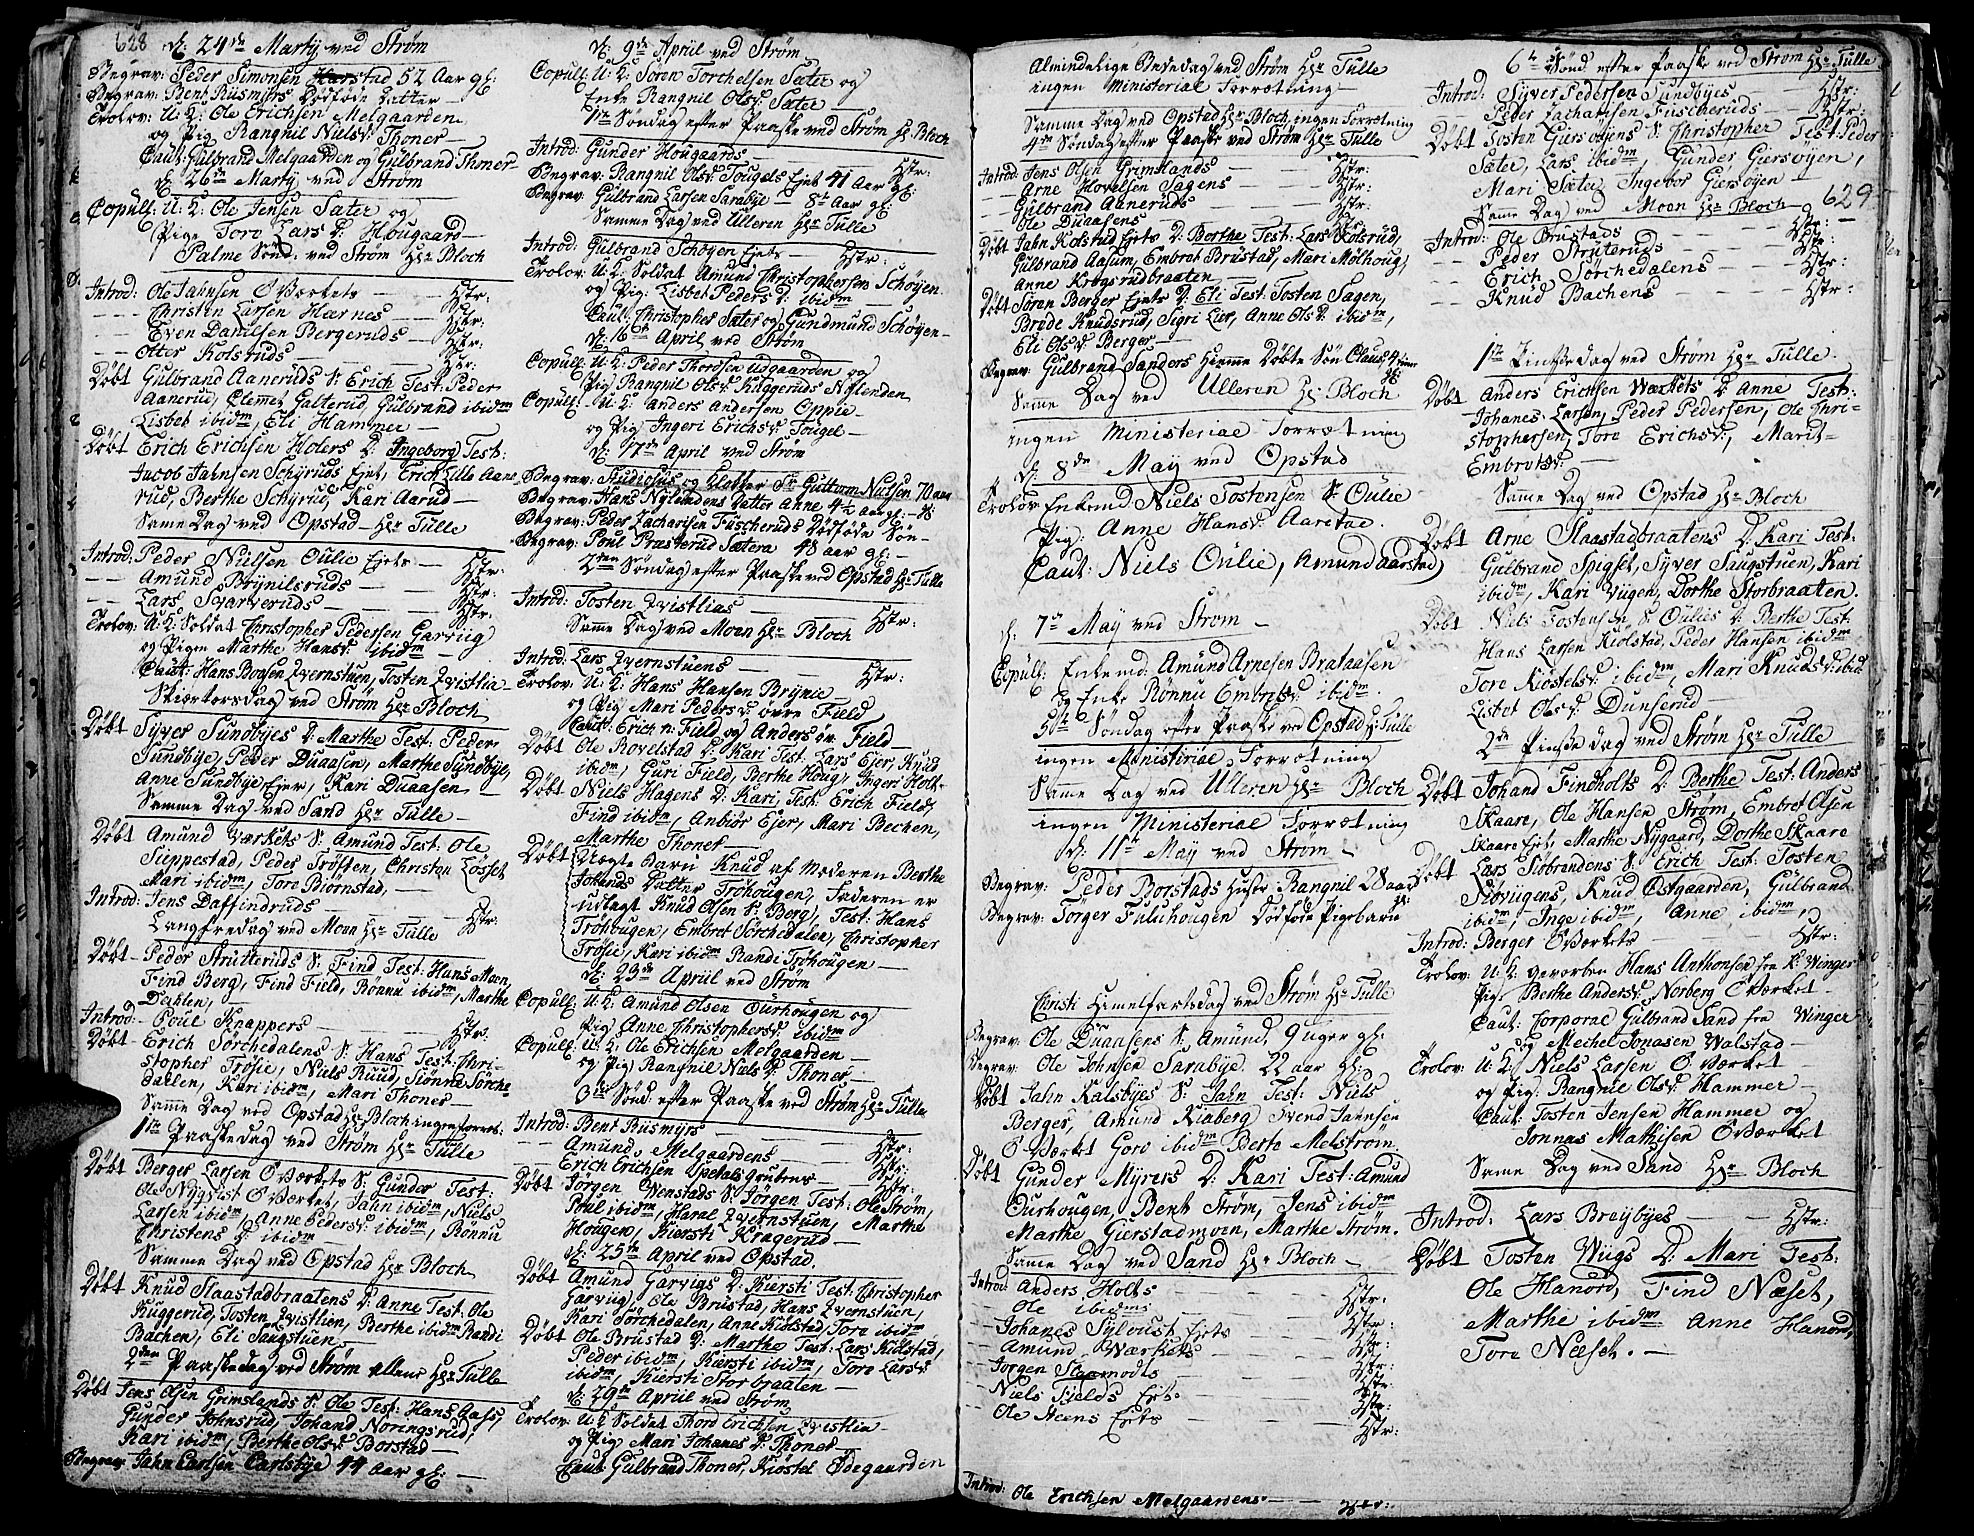 628
d: 24de Martij ved Strøm
Begrav: Peder Simonsen Harstad 52 Aar gl:
Begrav: Bent Rusmyrs Dødføde Datter —
Trolov: U: K: Ole Erichsen Melgaarden
og Pig Rangnil Nielsd: Thoner —
Caut: Gulbrand Melgaarden og Gulbrand Thoner
d: 26de Martij ved Strøm
Copul: U: K: Ole Jensen Sæter og
Pige Tore Lars D: Hougaard —
Palme Sønd: ved Strøm Hr Bloch
Introd: Ole Jahnsen O Værkets — Hstr:
- - - Christen Larsen Hærnes — Hstr:
- - Even Danielsen Bergeruds — Hstr:
- - Otter Kolsruds — Hstr:
Døbt Gulbrand Aaneruds S: Erich Test: Peder
Aanerud, Clemmet Galterud, Gulbrand ibidm
Lisbet ibidm, Eli Hammer —
Døbt Erich Erichsen Holers D: Ingeborg Test:
Jacob Jahnsen Schyruds Ejet, Erich Lille Aane
rud, Berthe Schyrud, Kari Aarud —
Samme Dag ved Opstad Hr Tulle
Introd: Peder Nielsen Oulie Ejets — Hstr:
- - Amund Brynilsruds — Hstr:
- - Lars Svarveruds — Hstr:
Trolov: U: K: Soldat Christopher Pedersen Garviig
og Pigen Marthe Hansd: ibidm —
Caut: Hans Boesen Qvernstuen, Tosten Qvistlia —
Skiertorsdag ved Strøm Hr Bloch
Døbt Syver Sundbyes D: Marthe Test: Peder
Sundbye, Peder Duaasen, Marthe Sundbye,
Anne Sundbye Ejer, Kari Duaasen —
Samme Dag ved Sand Hr Tulle —
Døbt Amund Værkets S: Amund Test: Ole
Sieppestad, Peder Trøften, Christen Løsset
Mari ibidm, Tore Biørnstad, —
Introd: Jens Daffindruds — Hstr:
Langfredag ved Moen Hr Tulle
Døbt - Peder Strutteruds S: Find Test: Hans Moen,
Find Berg, Find Field, Rønnu ibidm, Marthe
Dahlen, —
Introd: - Poul Knappers — Hstr:
Døbt - Erich Sørchedalens S: Hans Test: Chri-
stopher Trøsie, Niels Ruud, Siønne Sørche
dahlen, Kari ibidm, Mari Thoner —
Samme Dag ved Opstad Hr Bloch ingen forret:
1te Paaskedag ved Strøm Hr Tulle
Døbt Berger Larsen O Værkets S: Gunder Test:
Ole Nyqvist O Værket, Jahn ibidm, Niels
Larsen ibidm, Anne Pedersd: ibidm, Rønnu
Christens D: ibidm —
Samme Dag ved Opstad Hr Bloch
Døbt Knud Slaastadbraatens D: Anne Test: Ole
Kuggerud, Tosten Qvistlien, Berthe ibidm Randi
Bachen, Eli Saugstuen —
2den Paaskedag ved Strøm Hr Tulle
Døbt Jens Olsen Grimslands S: Ole Test: Hans Aass,
Gunder Johnsrud, Johand Noringsrud,
Kari ibidm, Berthe Olsd: Borstad —
Begrav Jahn Carlsen Carlsbye 44 Aar gl: —
d: 9de Apriil ved Strøm
Copul: U: K: Søren Torchelsen Sæter og
Enke Rangnil Olsd: Sæter —
1te Søndag efter Paaske ved Strøm Hr Bloch
Introd: Gunder Hougaards — Hstr:
Begrav: Rangnil Olsd: Tougels Ejet 41 Aar gl:
Begrav: Gulbrand Larsen Sarabye — 8t Aar gl:
Samme Dag ved Ulleren Hr Tulle
Introd: Gulbrand Schøyen Ejets — Hstr:
Trolov: U: K: Soldat Amund Christophersen Schøyen
og Pig: Lisbet Peders D: ibidm —
Caut: Christopher Sæter og Gundmund Schøyen —
d: 16de April ved Strøm
Copull: U: K: Peder Thordsen Udgaarden og
Pig Rangnil Olsd: Kuggeruds Nylenden
Copul: — U: K: Anders Andersen Oppie —
og Pig Ingeri Erichsd: Tougel —
d: 17de April ved Strøm
Begrav: Studiosus og Klokker Sr Guttorm Nielsen 70 aar
Begrav: Hans Nylændens Datter Anne 4½ Aar gl: —
Begrav: Peder Zacharisen Fuscheruds Dødføde Søn —
Begrav: Poul Præsterud Sætera 48 aar gl: —
2den Søndag efter Paaske ved Opstad Hr Tulle
Introd: Tosten Qvistlias — Hstr:
Samme Dag ved Moen Hr Bloch
Introd: Lars Qvernstuens — Hstr:
Trolov: U: K: Hans Hansen Brynie —
og Pig Mari Pedersd: øvre Field
Caut: Erich n: Field og Anders øv: Field —
Døbt Ole Rovelstad D: Kari Test: Lars Ejer, Knud
ibidm, Guri Field, Berthe Houg, Ingeri Holt —
Døbt Niels Hagens D: Kari, Test: Erich Field,
Find ibidm, Anbiør Ejer, Mari Bechen,
Marthe Thoner —
Døbt Uægte Barn Knud af Moderen Berthe
Johands Datter Trøhougen, Faderen er
udlagt Knud Olsen S: Berg, Test: Hans
Trøhougen, Embret Sørchedalen, Christopher
Trøsie, Kari ibidm Randi Trøhougen —
d: 23de Apriil ved Strøm
Copul: U: K: Amund Olsen Ourhougen og
Pig Anne Christophersd: ibidm
Copul: U: K: Ole Erichsen Melgaarden —
og Pig Rangnil Niels D: Thoner —
3die Sønd: efter Paaske ved Strøm Hr Tulle
Introd: Bent Rusmyrs — Hstr:
- - Amund Melgaardens — Hstr:
- - Erich Erichsen Spetals grubens — Hstr:
Døbt Jørgen Wenstads S: Jørgen Test: Ole Strøm,
Poul ibidm, Harel Qvernstuen, Marthe
Hougen, Kiersti Kragerud —
d: 25de April ved Opstad,
Døbt Amund Garvigs D: Kiersti Test: Christopher
Garvug, Ole Brustad, Hans Qvernstuen,
Kari Sørchedalen, Anne Kiølstad, Tore ibidm
Døbt Ole Brustad D: Marthe Test: Lars Kiølstad,
Peder ibidm, Kiersti ibidm, Tore Larsd:
ibidm, Kiersti Storbraaten —
d: 29de Apriil ved Strøm
Trolov: U: K: Soldat Thord Erichsen Qvistlin —
og Pig Mari Johanes D: Thoner —
Caut: Gulbrand Thoner, Kiøstel Ødegaarden
Almindelige Bededag ved Strøm Hr Tulle
ingen Ministerial Forretning —
Samme Dag ved Opstad Hr Bloch, ingen Forretning
4de Søndag efter Paaske ved Strøm Hr Tulle
Introd: Jens Olsen Grimslands — Hstr:
- - Arne Hovelsen Sagens — Hstr:
- - Gulbrand Aaneruds — Hstr:
- - Ole Duaasens — Hstr:
Døbt Jahn Kolsrud Ejets D: Berthe Test: Lars Kolsrud,
Gulbrand Aasum, Embret Brustad, Mari Mølhoug,
Anne Krogsrudbraaten —
Døbt Søren Berger Ejets D: Eli Test: Tosten Sagen,
Brede Knudsrud, Sigri Lier, Anne Olsd: ibidm,
Eli Olsd: Berger —
Begrav: Gulbrand Sanders hiemme Døbte Søn Claus, 4 timer gl:
Samme Dag ved Ulleren Hr Bloch
ingen Ministerial Forretning
d: 8de May ved Opstad
Trolov: Enkemd: Niels Tostensen S: Oulie
Pig: Anne Hansd: Aarstad.
Caut: Niels Oulie, Amund Aarstad
d: 7de May ved Strøm —
Copul: Enkemd: Amund Arnesen Brataasen
og Enke Rønnu Embretsd: ibidm.
5te Søndag efter Paaske ved Opstad Hr Tulle
ingen Ministerial Forretning
Samme Dag ved Ulleren Hr Bloch
ingen Ministerial Forretning
d: 11te May ved Strøm —
Begrav: Peder Borstads Hustr: Rangnil 28 aar gl:
Begrav: Tørger Fuluhougen Dødføde Pigebarn
Christi Himelfartsdag ved Strøm Hr Tulle
Begrav: Ole Duaasens S: Amund, 9 uger gl:
Begrav: Ole Johnsen Sarabye. 22 aar gl:
Døbt Jahn Kalsbyes S: Jahn Test: Niels
Berger, Amund Kiaberg Svend Jahnsen
O Værket Goro ibidm Berte Melstrøm
Døbt Gunder Myrers D: Kari Test: Amund
Ourhougen, Bent Strøm, Jens ibidm
Marthe Gierstadmoen, Marthe Strøm.
Samme Dag ved Sand Hr Bloch —
Introd: Anders Holts — Hstr:
- - Ole ibidms — Hstr:
- - Johanes Sylvust Ejets — Hstr:
- - Amund Værkets — Hstr:
- - Jørgen Skarmodts — Hstr:
- - Niels Fields Ejt: — Hstr:
- - Ole Steens Ejts — Hstr:
Introd: Ole Erichsen Melgaardens — Hstr:
6te Sønd efter Paaske ved Strøm Hr Tulle
Introd: Syver Pedersen Sundbyes — Hstr:
- - Peder Zacharisen Fuscheruds — Hstr:
Døbt Tosten Giersøyens S: Christopher Test: Peder
Sæter, Lars ibidm, Gunder Giersøyen,
Mari Sæter, Ingebor Giersøyen —
629
Same Dag ved Moen Hr Bloch
Introd: Ole Brustads — Hstr:
- - Peder Struteruds — Hstr:
- - Erich Sorchedalens — Hstr:
- - Knud Bachens — Hstr:
1te Pintsedag ved Strøm Hr Tulle.
Døbt Anders Erichsen Wærkets D: Anne Test:
Johanes Larsen, Peder Pedersen, Ole Chri-
stophersen, Tore Erichsd:, Marit
Embretsd: —
Same Dag ved Opstad Hr Bloch
Døbt Arne Slaastadbraatens D: Kari Test:
Gulbrand Spigset, Syver Saugstuen, Kari
ibidm, Kari Viigen, Dorthe Storbraaten.
Døbt Niels Tostensen S: Oulies D: Berthe Test:
Hans Larsen Kiolstad, Peder Hansen ibidm
Tore Kiøstelsd: ibidm, Mari Knudsd: ibid
Lisbet Olsd: Dunserud —
2den Pintse dag ved Strøm Hr Tulle
Døbt Johand Findholts D: Berthe Test: Anders
Skaare, Ole Hansen Strøm, Embret Olsen
Skaare Ejet, Marthe Nygaard, Dorthe Skaare
Døbt Lars Siøbrendens S: Erich Test: Tosten
Næbviigens, Knud Østgaarden, Gulbrand
ibidm, Inge ibidm, Anne ibidm,
Introd: Berger O Værkets — Hstr:
Trolov: U: K: gevorben Hans Anthonsen fra K: Winger
Pig: Berthe Andersd: Norberg O Værket
Caut: Corporal Gulbrand Sand fra Winger
og Mechel Jonasen Walstad —
Trolov: U: K: Niels Larsen O Værket
og Pig: Rangnil Olsd: Hammer —
Caut: Tosten Jensen Hammer og
Jonnas Mathisen O Værket
Same Dag ved Sand Hr Bloch
Introd: Lars Breybyes — Hstr:
Døbt Tosten Wiigs D: Mari Test:
Ole Hanord, Find Næset,
Marthe ibidm Anne Hanord,
Tore Neeset. —